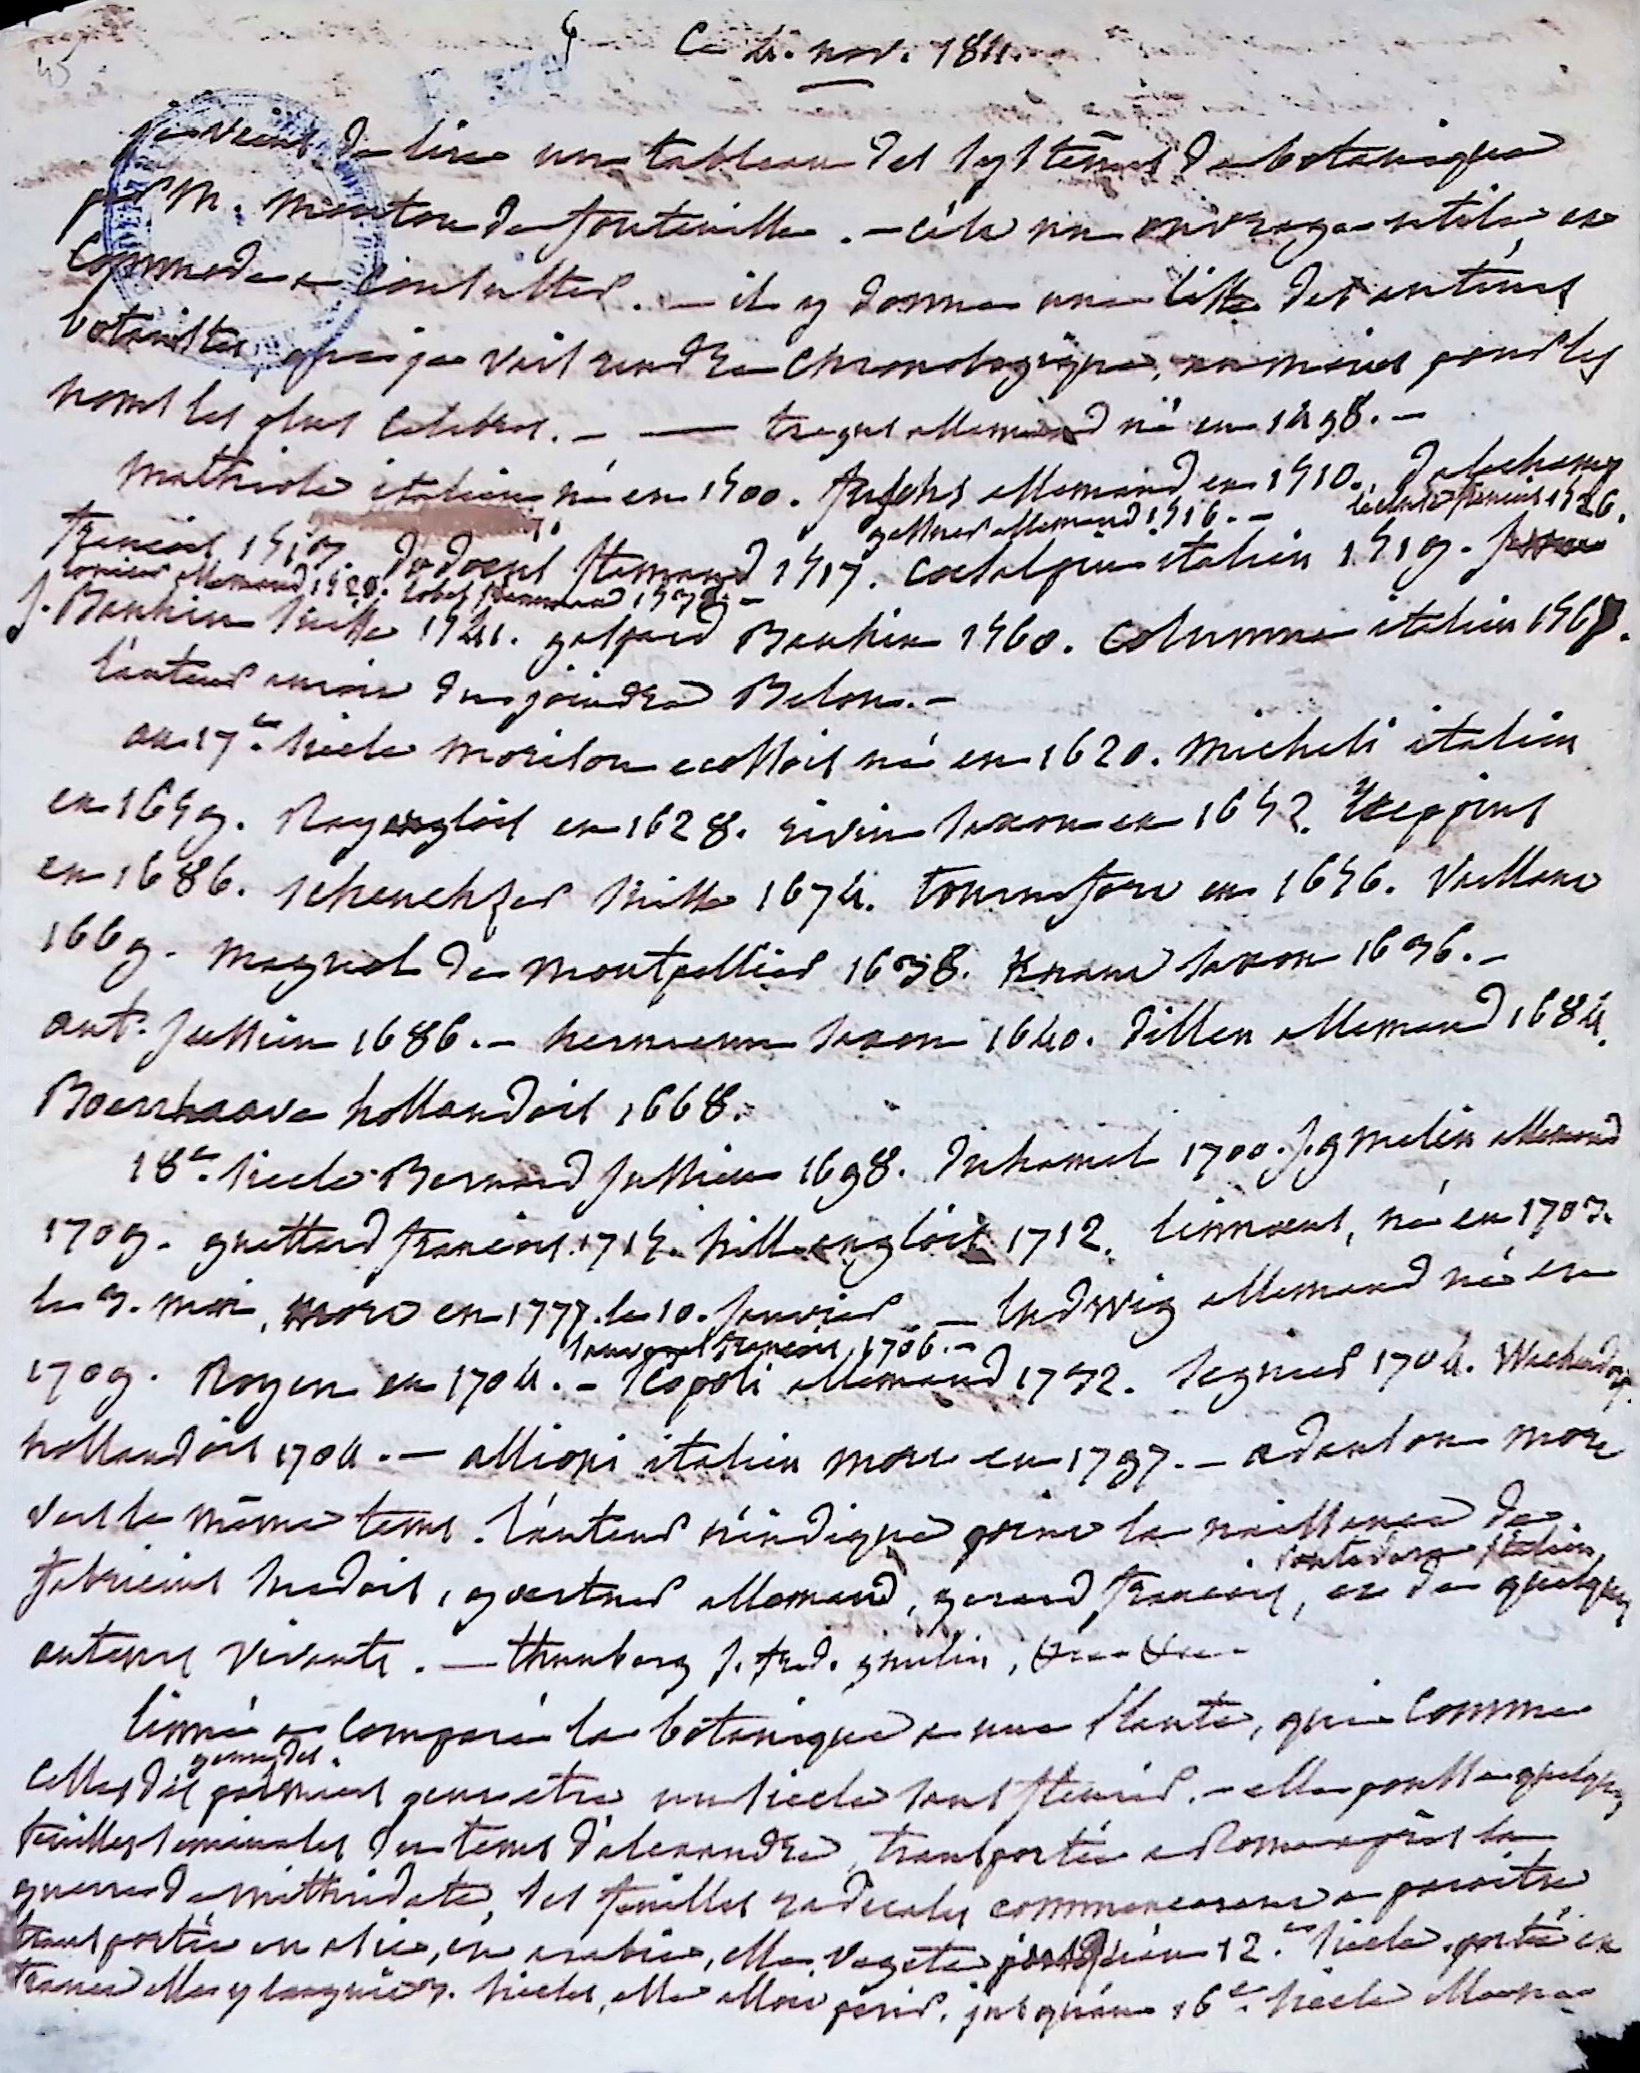 Ce 4. nov. 1811.
je viens de lire un tableau des systêmes de botanique
par M. mouton de fontenille. - c'est un ouvrage utile et
commode a consulter. - il y donne une liste des auteurs
botanistes, que je vais rendre chronologique, au moins pour les
noms les plus celebres. - — tragus allemand né en 1498. -
mathiole italien né en 1500. fuschs allemand en 1510. dalechamp
gessner allemand 1516. - l'ecluse francois 1526.
francois 1513. dodoens flamand 1517. coesalpin italien 1519.
lonicer allemand 1528. lobel flammand 1538. -
J. Bauhin suisse 1541. gaspard Bauhin 1560. columna italien 1567.
l'auteur auroit du joindre Belon. -
au 17.e siecle morison ecossois né en 1620. micheli italien
en 1659. Ray anglois en 1628. rivin saxon en 1652.
en 1686. scheuchzer suisse 1674. tournefort en 1656. vaillant
1669. magnol de montpellier 1638. Knaut saxon 1696. -
ant. jussieu 1686. - hermann saxon 1640. dillen allemand 1684.
Boerrhaave hollandois 1668.
18.e siecle Bernard jussieu 1698. duhamel 1700. J. gmelin allemand
1709. guettard francois 1715. hill anglois 1712. linnaeus, né en 1707.
le 3. mai, mort en 1777. le 10. janvier — ludwig allemand né en
sauvages francois 1706. -
1709. Royen en 1704. - scopoli allemand 1732. seguier 1704. Wachendorf
hollandois 1704. - allioni italien mort en 1797. - adanson mort
vers le même tems. l'auteur n'indique point la naissance de
pontedera italien,
fabricius suedois, goertner allemand, gerard francois, et de quelques
auteurs vivants. - thunberg J. fred. gmelin,
linné a comparé la botanique a une plante, qui comme
genre des
celles des palmiers peut etre un siecle sans fleurir. - elle poussa quelques
feuilles seminales du tems d'alexandre, transportée a Rome après la
guerre de mithridate, ses feuilles radicales commencerent a paroitre
transportée en asie, en arabie, elle vegeta jusqu'au 12.e siecle. portée en
france elle y languit 3. siecles, elle alloit perir. jusqu'au 16.e siecle